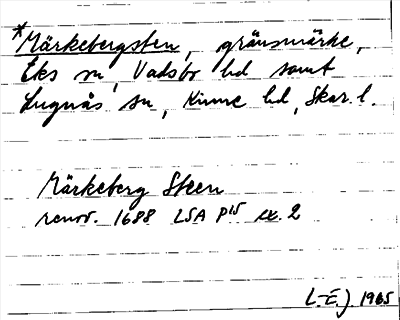 *Märkebergsten, gränsmärke,
Eks sn, Vadsbo hd samt
Lugnås sn, Kinne hd, Skar. l.
Märkeberg Steen
renov. 1688 LSA P15 ex. 2
L-E.J. 1965